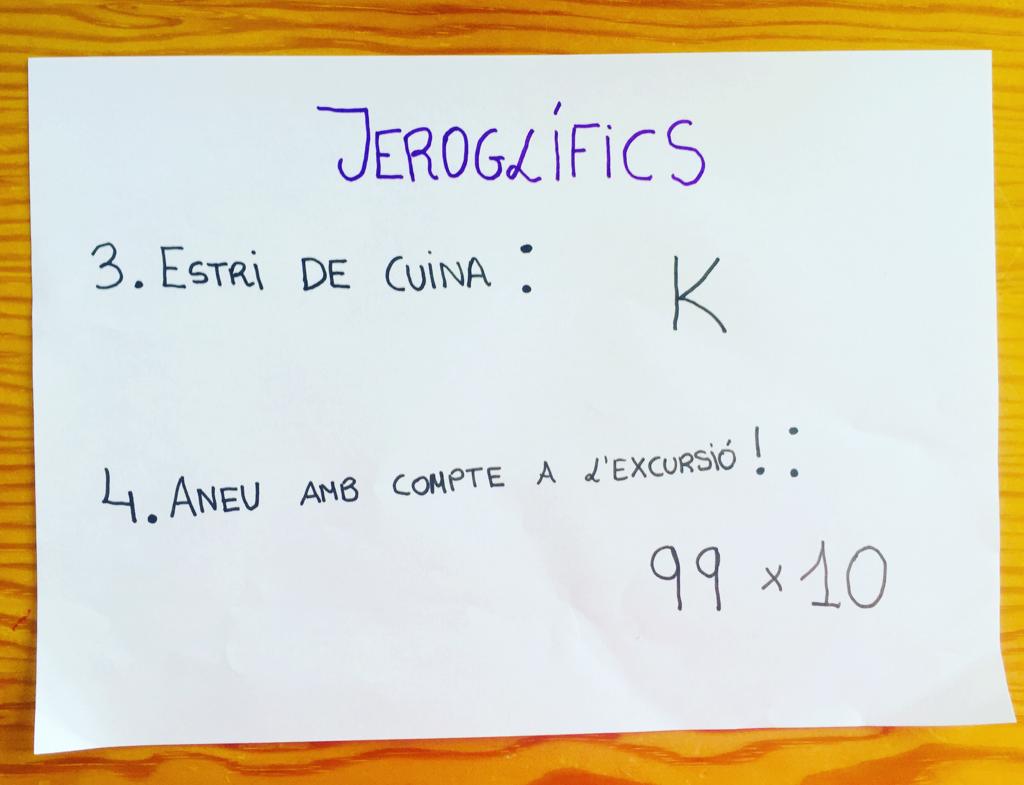 JEROGLÍFICS
3. ESTRI DE CUINA :
K
4. ANEU AMB COMPTE A L'EXCURSIÓ ! :
99 x 10